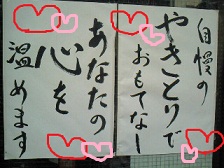 自慢の
やきとりで
おもてなし
あなたの
心を
温めます